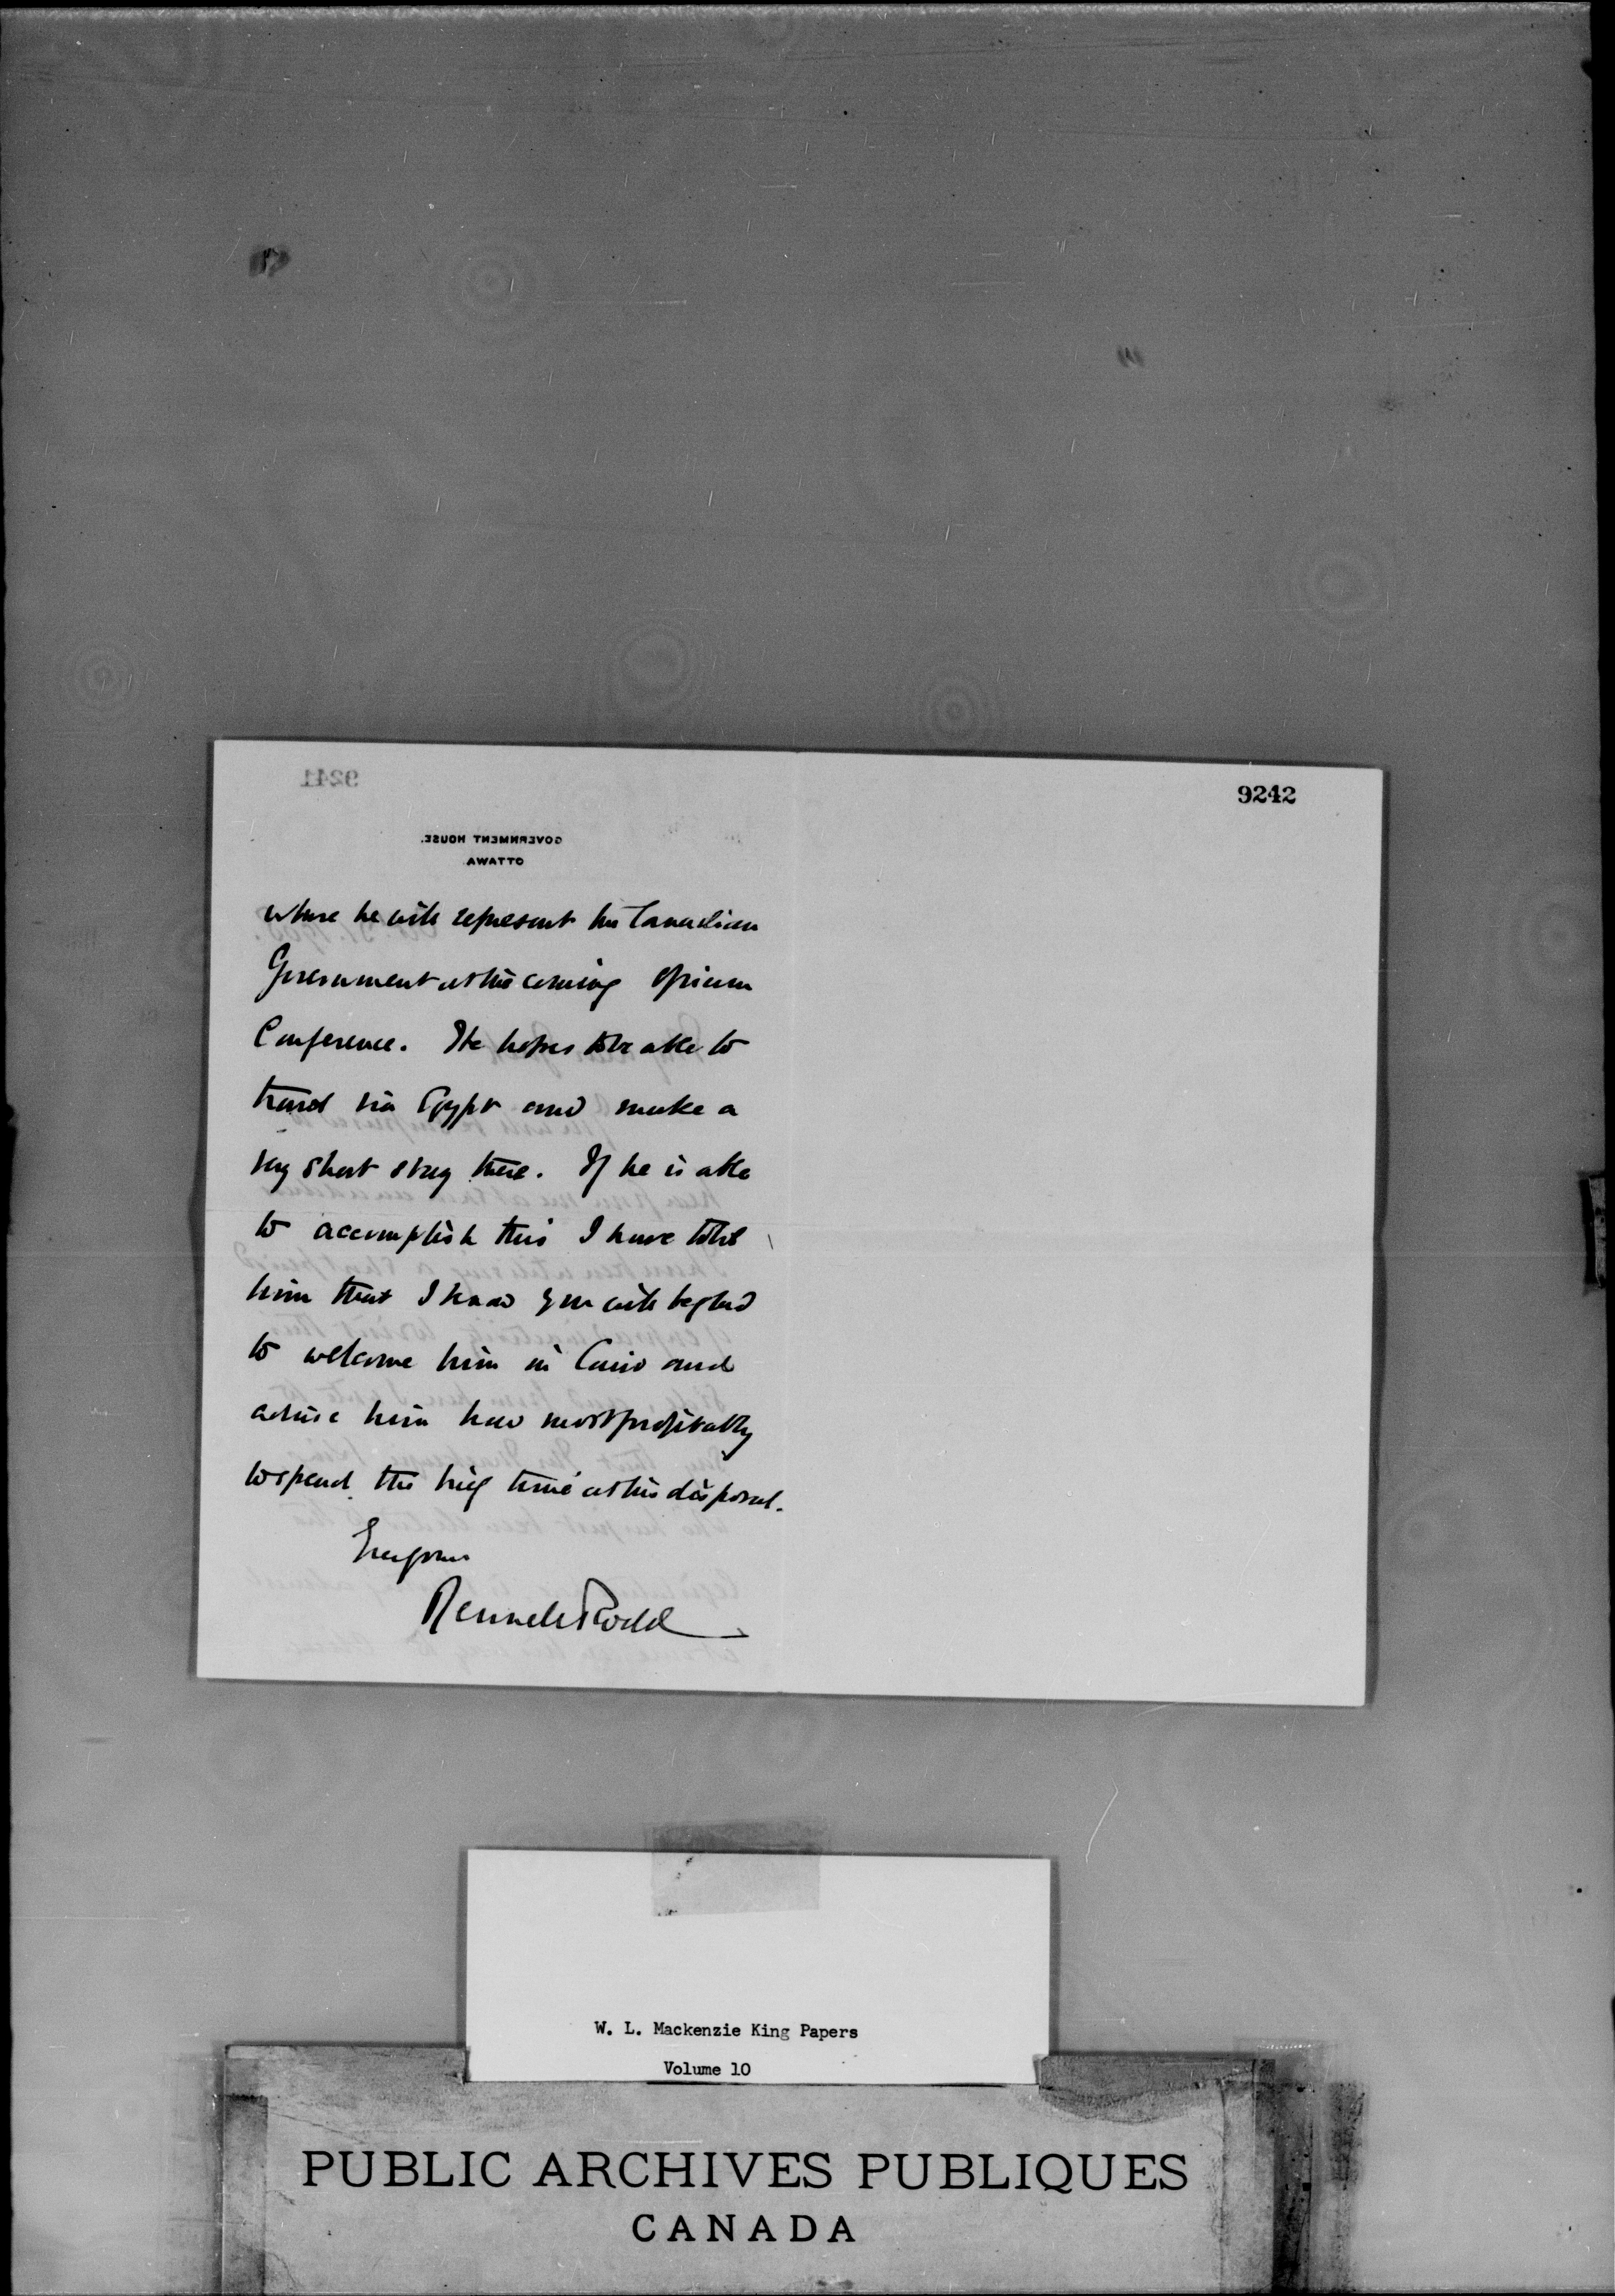 9242
where he will represent the Canadian
Government at the coming Opium
Conference. He hopes to be able to
travel via Egypt and make a
very short stay there. If he is able
to accomplish this I have told
him that I know you will be glad
to welcome him in Cairo and
advise him how most profitably
to spend the brief time at his disposal.
Ever yours
Rennell Rodd
9241
GOVERNMENT HOUSE.
OTTAWA
W. L. Mackenzie King Papers
Volume 10
PUBLIC ARCHIVES PUBLIQUES
CANADA